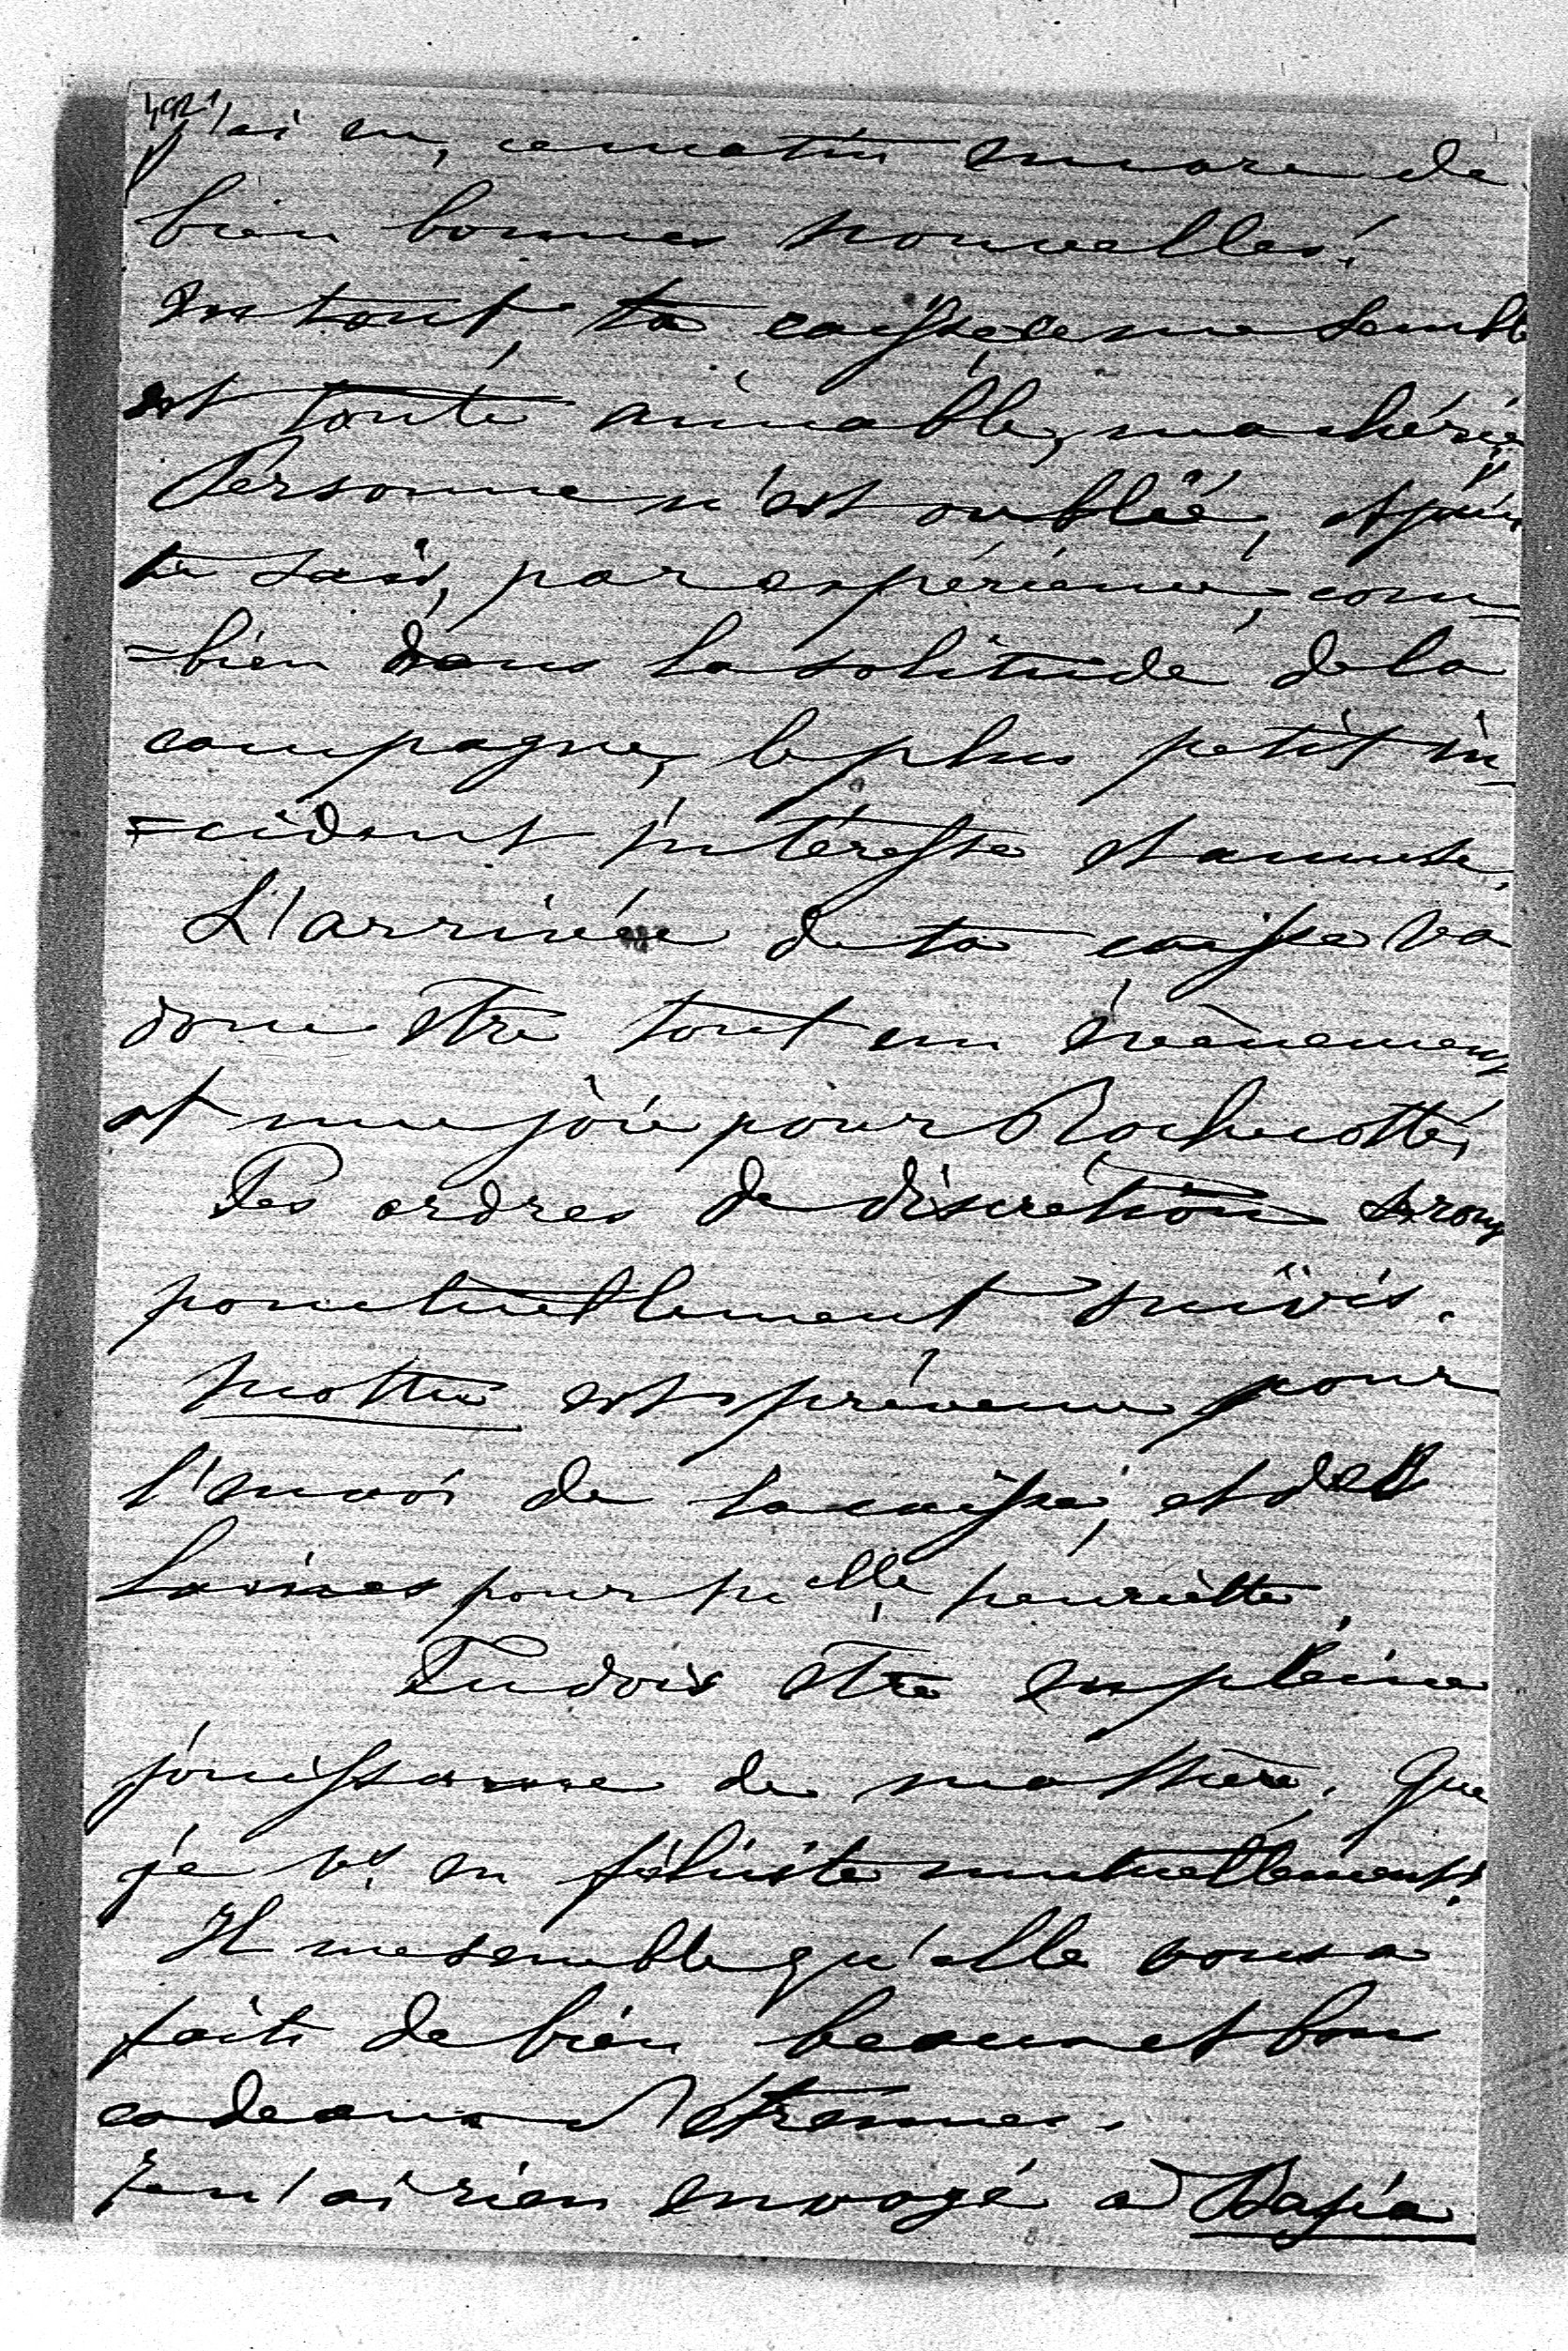 J'ai eu, ce matin encore de
bien bonnes nouvelles!
En tout, ta caisse ce me semble
est toute aimable, ma chérie,
Personne n'est oublié, et puis
tu sais, par expérience, com-
=bien dans la solitude de la
campagne, le plus petit in-
=cident intéresse et amuse.
L'arrivée de ta caisse va
donc être tout un évènement
et une joie pour Rochecotte,
Tes ordres de discrétion seront
ponctuellement suivis.
est prévenu pour
l'envoi de la caisse, et des
laines pour Melle henriette,
Tu dois être en pleine
jouissance de ma thière. Que
je vs. en félicite mutuellement!
Il me semble qu'elle vous a
faits de bien beaux et bons
cadeaux d'étrennes.
Je n'ai rien envoyé à